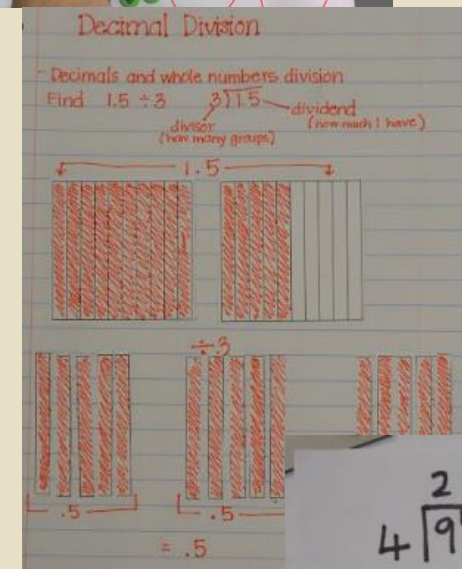 Decimal Division
- Decimals and whole numbers division
Find 1.5 ÷ 3 3)1.5 dividend
(how much I have)
divisor
(how many groups)
1.5
÷3
.5 .5
= .5
2
4)9